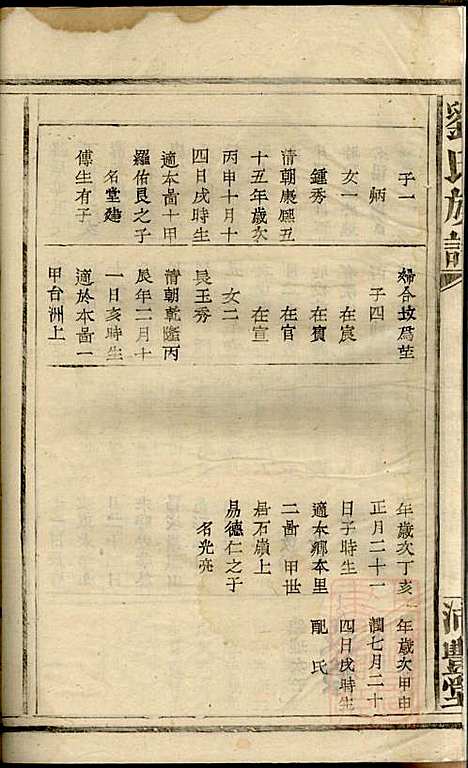 劉氏族譜
沛豐堂
子一
炳
女一
鍾秀
清朝康熙五
十五年歲次
丙申十月十
四日戌時生
適本啚十甲
羅佑良之子
名堂建
傳生有子
婦合坟為塋
子四
在宸
在賓
在官
在宣
女二
長玉秀
清朝乾隆丙
辰年二月十
一日亥時生
適於本啚一
甲台洲上
年歲次丁亥
正月二十一
日子時生
適本鄉本里
二啚 甲世
居石嶺上
易德仁之子
名光亮
年歲次甲申
潤七月二十
四日戌時生
配氏